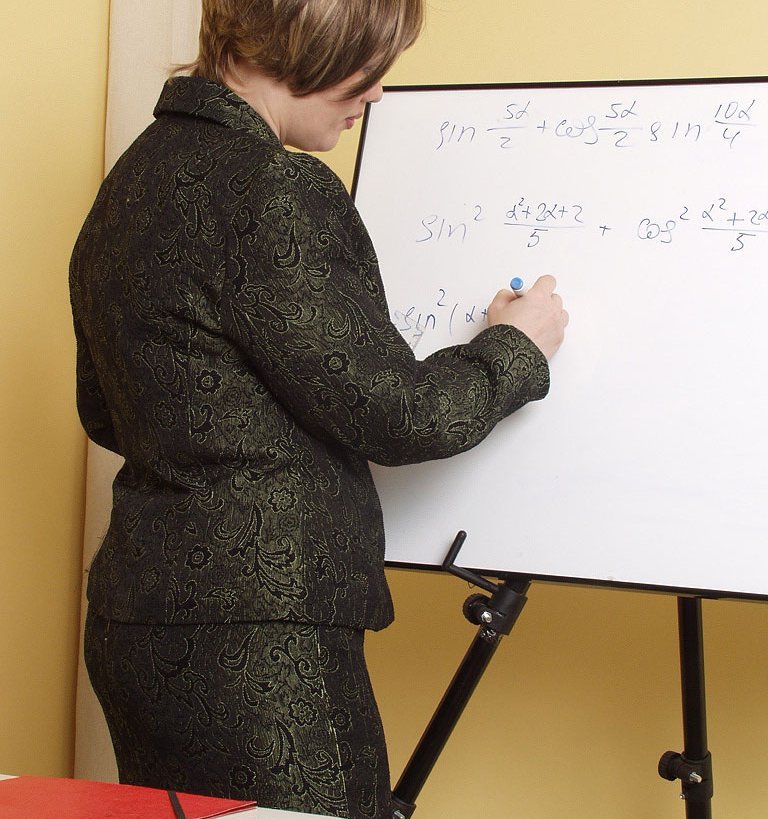 sin 5α/2 + cos 5α/2 sin 10α/4
sin² α²+2α+2/5 + cos² α²+2α/5
sin² (α+